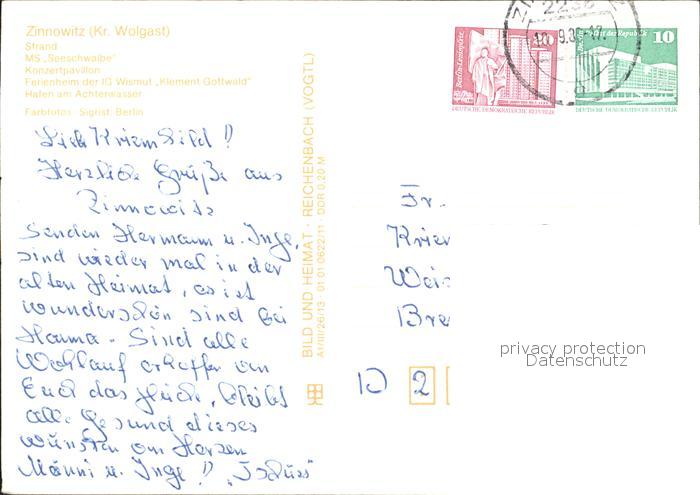 Zinnowitz (Kr. Wolgast)
Strand
MS „Seeschwalbe"
Konzertpavillon
Ferienheim der IG Wismut „Klement Gottwald"
Hafen am Achterwasser
Farbfotos: Sigrist, Berlin
Lieb Kriemhild !!
Herzliche Grüße aus
Zinnowitz
Senden Hermann u. Inge,
sind wieder mal in der
alten Heimat, es ist
wunderschön sind bei
Hanna. Sind alle
Wohlauf erhoffen von
Euch das Glück, bleibt
alle Gesund dieses
wünschen von Herzen
Männi u. Inge !! „Tschüss"
BILD UND HEIMAT · REICHENBACH (VOGTL)
A1/III/26/13 01 01 0622/11 DDR 0,20 M
Berlin, Leninplatz
DEUTSCHE DEMOKRATISCHE REPUBLIK
Berlin, Palast der Republik
10
DEUTSCHE DEMOKRATISCHE REPUBLIK
2238
Fr.
Krie
Wei
Bre
D 2
privacy protection
Datenschutz